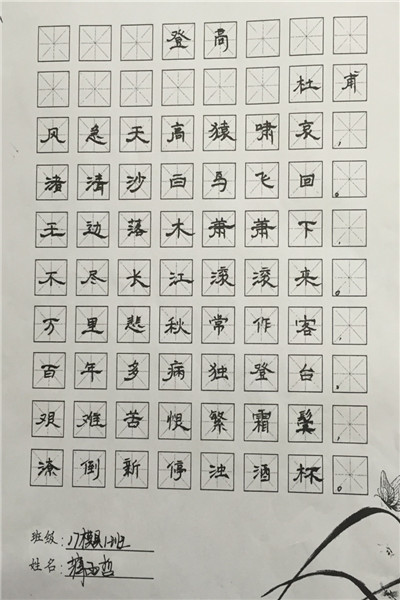 登高
杜甫
风急天高猿啸哀，
渚清沙白鸟飞回。
无边落木萧萧下，
不尽长江滚滚来。
万里悲秋常作客，
百年多病独登台。
艰难苦恨繁霜鬓，
潦倒新停浊酒杯。
班级：17模具1班
姓名：